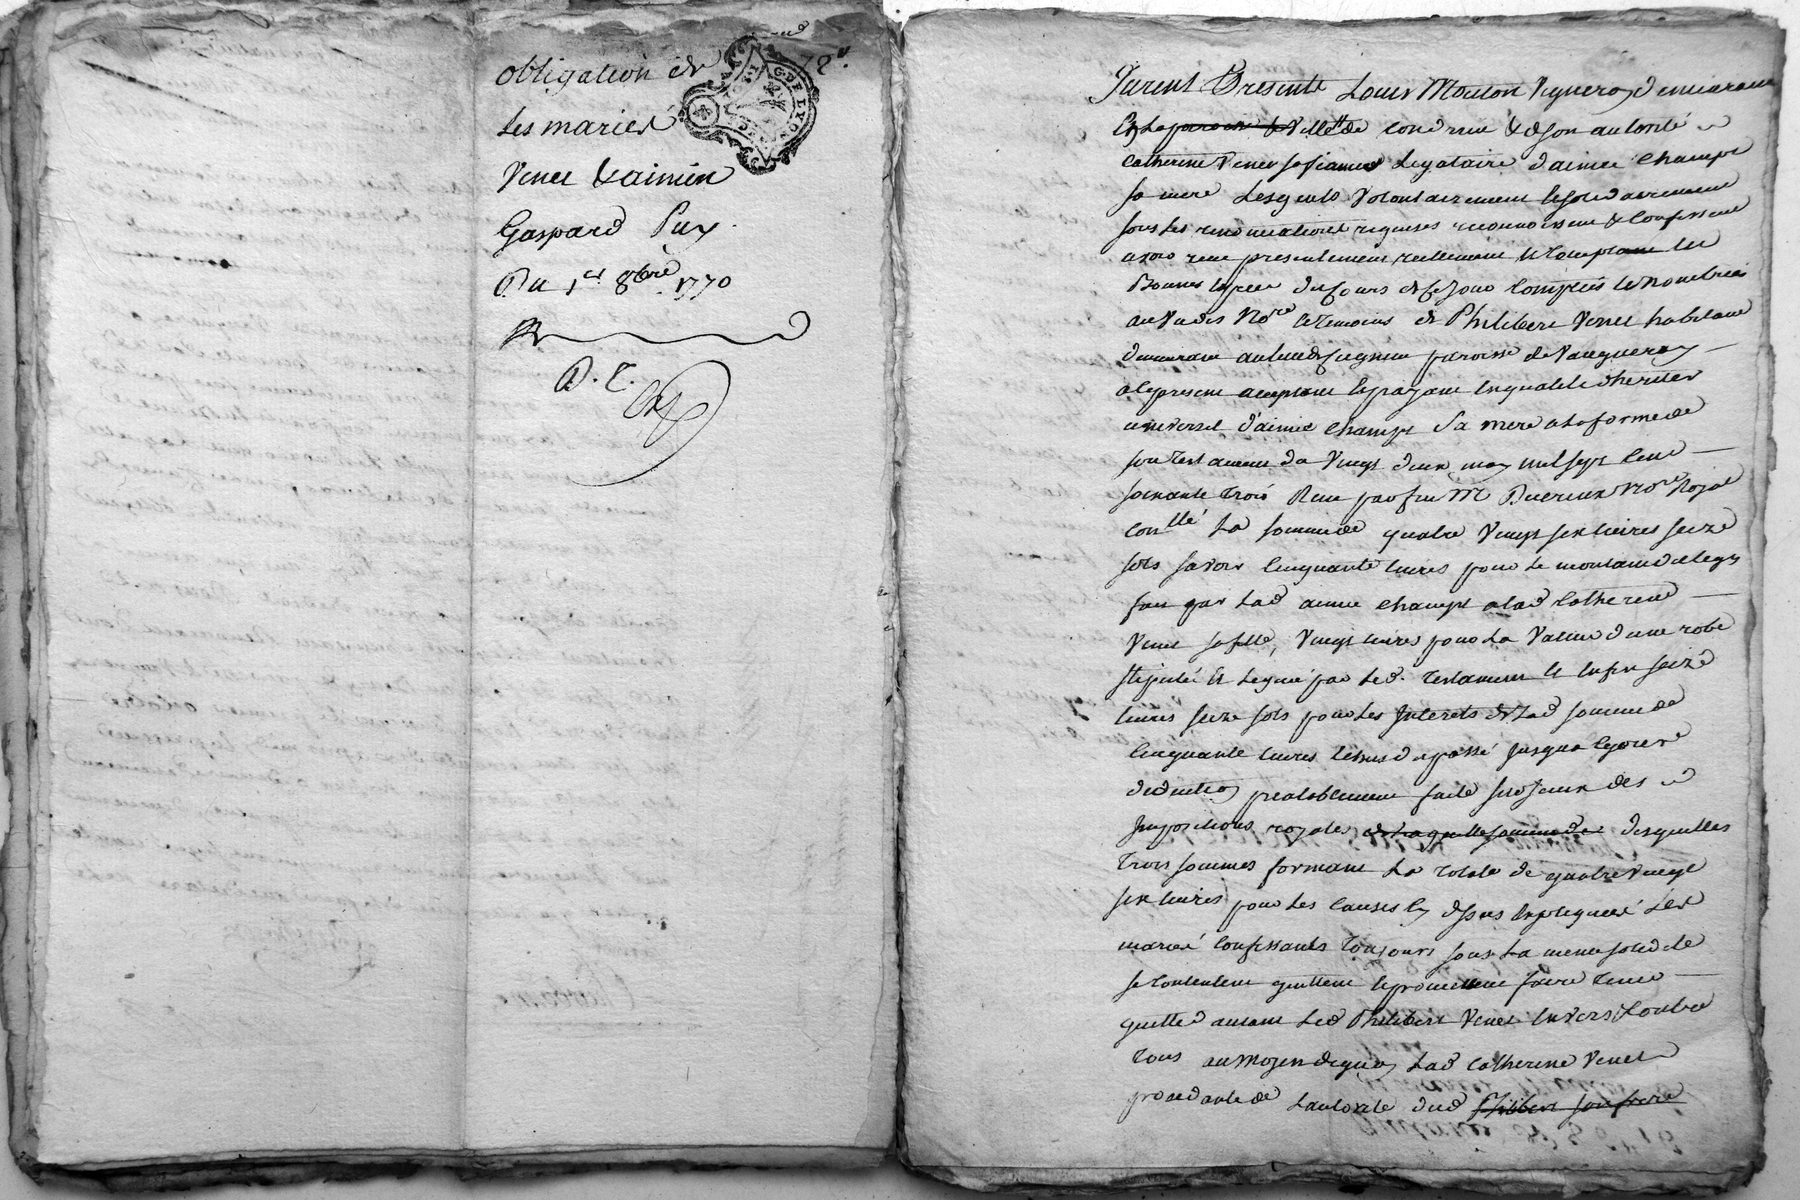 obligation de 72#.
Les mariés
Venet & aimien
Gaspard Puy.
Du 1er 8bre 1770
D. C.
G. DE LYON
Furent Presents Louis Mouton Vigneron demeurant
villette de condrieu & de son autorité
Catherine Venet sa fiamme Legataire d'aimée champt
sa mere Lesquels Volontairement et solidairement
sous les renonciations requises reconnoissent & confessent
avoir receu presentement reellement et comptant en
Bonnes especes du cours de ce jour comptées et nombrées
au Vu des Nore et temoins de Philibert Venet habitant
demeurant au lieu de paroisse de Vaugneray
a ce present acceptant et payant en qualité d'heritier
universel d'aimée champt Sa mere a la forme de
son testament du Vingt deux may mil sept cent
soixante trois Receu par feu Me Nore Royal
La somme de quatre Vingt six livres seize
sols savoir cinquante livres pour Le montant du legs
fait par Lad aimée champt a lad Catherine
Venet sa fille, Vingt livres pour La Valeur d'une robe
stipulée et Leguée par Led. testament et enfin seize
livres seize sols pour Les Interets de Lad somme de
cinquante livres du passé jusqu'a ce jour
deduction prealablement faite sur iceux des
Impositions royales de laquelle somme de desquelles
trois sommes formant La totale de quatre Vingt
six livres pour Les causes cy dessus expliquées Les
mariés confessants toujours sous La meme solidité
se contentent quittent et promettent faire tenir
quitte autant Led Philibert Venet envers & contre
tous au moyen de quoy Lad Catherine Venet
procedante de L'autorité dud Philibert son frere